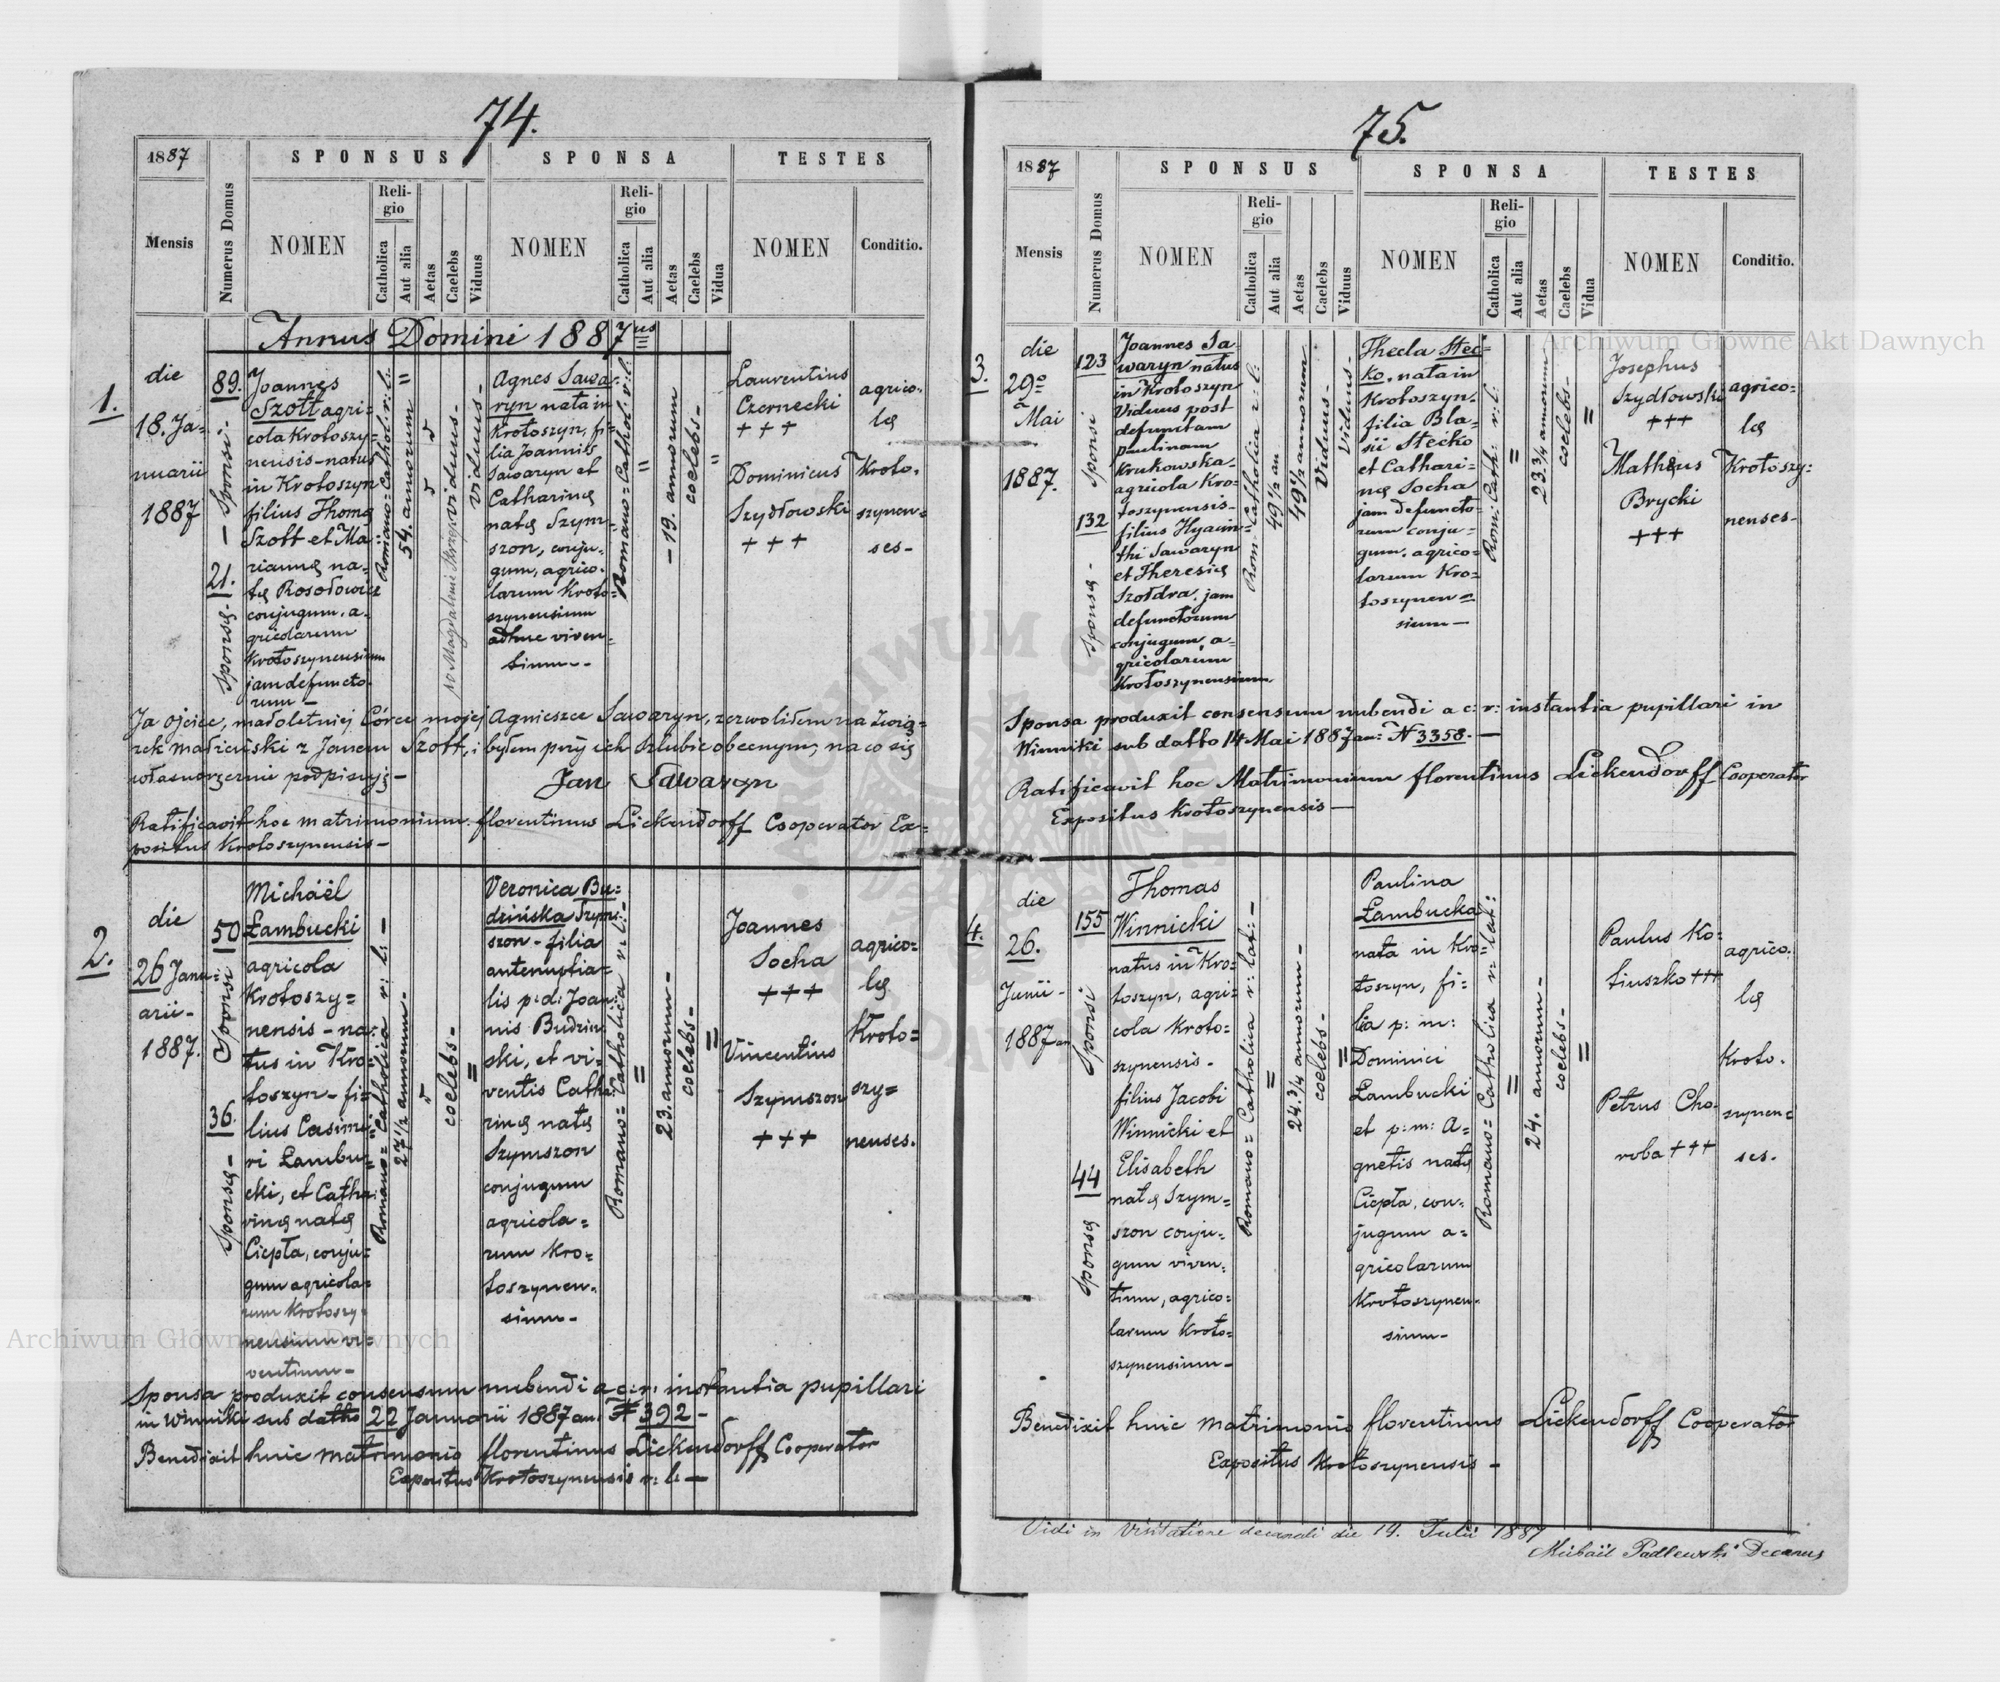 74.
1887
SPONSUS
SPONSA
TESTES
Mensis
Numerus Domus
NOMEN
Religio
Catholica
Aut alia
Aetas
Caelebs
Viduus
NOMEN
Religio
Catholica
Aut alia
Aetas
Caelebs
Vidua
NOMEN
Conditio.
Annus Domini 1887
1.
die
18. Ja=
nuarii
1887
89.
Sponsi
21.
Sponsę
Joannes
Szott agri=
cola Krotoszy=
nensis - natus
in Krotoszyn
filius Thomę
Szott et Ma=
riannę na=
tę Rosołowicz
conjugum, a=
gricolarum
Krotoszynensium
jam defuncto=
rum -
Romano = Cathol: r: l:
54. annorum
viduus -
viduus -
Agnes Sawa=
ryn nata in
Krotoszyn, fi=
lia Joannis
Sawaryn et
Catharinę
natę Szym=
szon, conju=
gum, agrico=
larum Kroto=
szynensium
adhuc viven=
tium -
Romano = Cathol. r: l:
19. annorum
coelebs -
Laurentius
Czernecki
+++
Dominicus
Szydłowski
+++
agrico=
lę
Kroto=
szynen=
ses -
Ja ojciec, małoletniej Córce mojej Agnieszce Sawaryn, zezwoliłem na Zwią=
zek małżeński z Janem Szott, i byłem przy ich szlubie obecnym, na co się
własnoręcznie podpisuję -
Jan Sawaryn
Ratificavit hoc matrimonium florentinus Lickendorff Cooperator Ex=
positus Krotoszynensis -
2.
die
26 Janu=
arii -
1887.
50
Sponsi
36.
Sponsę -
Michaël
Łambucki
agricola
Krotoszy=
nensis - na=
tus in Kro=
toszyn - fi=
lius Casimi=
ri Łambuc=
cki, et Catha=
rinę natę
Ciepła, conju=
gum agricola=
rum Krotoszy=
nensium vi=
ventium -
Romano = Catholica r: l: -
27 1/2 annorum -
coelebs -
Veronica Bu=
dzińska Szym=
szon - filia
antenuptia=
lis p: d: Joan=
nis Budzin
ski, et vi=
ventis Catha=
rinę natę
Szymszon
conjugum
agricola=
rum Kro=
toszynen=
sium -
Romano = Catholica r: l: -
23. annorum -
coelebs -
Joannes
Socha
+++
Vincentius
Szymszon
+++
agrico=
lę
Kroto=
szy=
nenses.
Sponsa produxit consensum nubendi a c: r: instantia pupillari
in Winniki sub datto 22 Januarii 1887 an. N 392 -
Benedixit huic matrimonio florentinus Lickendorff Cooperator
Expositus Krotoszynensis r: l: -
75.
1887
SPONSUS
SPONSA
TESTES
Mensis
Numerus Domus
NOMEN
Religio
Catholica
Aut alia
Aetas
Caelebs
Viduus
NOMEN
Religio
Catholica
Aut alia
Aetas
Caelebs
Vidua
NOMEN
Conditio.
3.
die
29º
Mai
1887.
123
Sponsi
132
Sponsę -
Joannes Sa
waryn natus
in Krotoszyn
Viduus post
defunctam
Paulinam
Krukowska -
agricola Kro=
toszynensis -
filius Hyacin=
thi Sawaryn
et Theresię
Szołdra, jam
defunctorum
conjugum, a=
gricolarum
Krotoszynensium
Rom: Catholica r: l:
49 1/2 an
49 1/2 annorum
Viduus -
Viduus -
Thecla Stec=
ko, nata in
Krotoszyn -
filia Bla=
sii Stećko
et Cathari=
nę Socha
jam defuncto=
rum conju=
gum, agrico=
larum Kro=
toszynen=
sium -
Rom: Cath: r: l:
23 3/4 annorum
coelebs -
Josephus
Szydłowski
+++
Mathęus
Brycki
+++
agrico=
lę
Krotoszy=
nenses -
Sponsa produxit consensum nubendi a c: r: instantia pupillari in
Winniki sub datto 14 Mai 1887 an: N 3358. -
Ratificavit hoc Matrimonium florentinus Lickendorff Cooperator
Expositus Krotoszynensis -
4.
die
26.
Junii -
1887 an
155
Sponsi
44
Sponsę
Thomas
Winnicki
natus in Kro=
toszyn, agri=
cola Kroto=
szynensis -
filius Jacobi
Winnicki et
Elisabeth
natę Szym=
szon conju=
gum viven=
tium, agrico=
larum Kroto=
szynensium -
Romano = Catholica r: lat: -
24. 3/4 annorum -
coelebs -
Paulina
Łambucka
nata in Kro=
toszyn, fi=
lia p: m:
Dominici
Łambucki
et p: m: A=
gnetis natę
Ciepła, con=
jugum a=
gricolarum
Krotoszynen=
sium -
Romano = Catholica r: lat:
24. annorum -
coelebs -
Paulus Ko=
tiuszko +++
Petrus Cho=
roba +++
agrico=
lę
Kroto=
szynen=
ses.
Benedixit huic matrimonio florentinus Lickendorff Cooperator
Expositus Krotoszynensis -
Vidi in Visitatione decanali die 14. Julii 1887
Michaël Padlewski Decanus
Archiwum Główne Akt Dawnych
Archiwum Główne Akt Dawnych